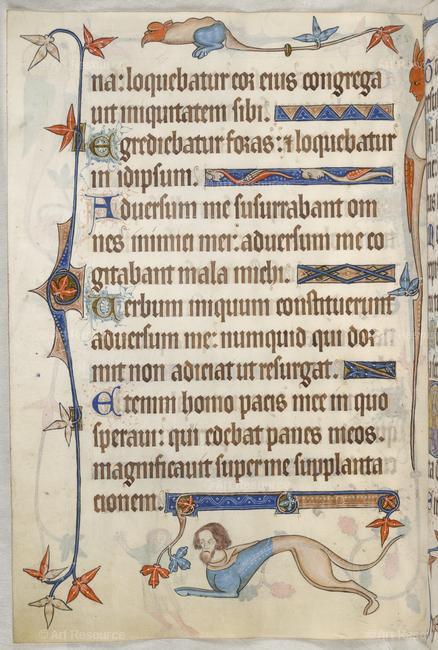 na: loquebatur cor eius congrega
uit iniquitatem sibi.
Egrediebatur foras: ⁊ loquebatur
in idipsum.
Aduersum me susurrabant om
nes inimici mei: aduersum me co
gitabant mala michi.
Uerbum iniquum constituerunt
aduersum me: numquid qui dor
mit non adiciat ut resurgat.
Etenim homo pacis mee in quo
speraui: qui edebat panes meos.
magnificauit super me supplanta
cionem.
© Art Resource
© Art Resource